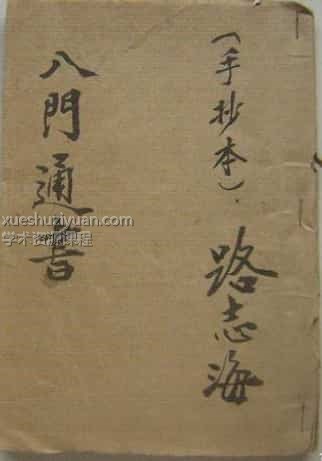 （手抄本）
路志海
八門通書
xueshuziyuan.com
学术资源课程